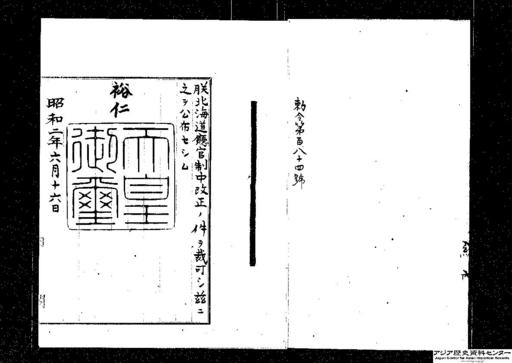 勅令第百八十四號
朕北海道廳官制中改正ノ件ヲ裁可シ茲ニ
之ヲ公布セシム
裕仁
天皇
御璽
昭和二年六月十六日
アジア歴史資料センター
Japan Center for Asian Historical Records